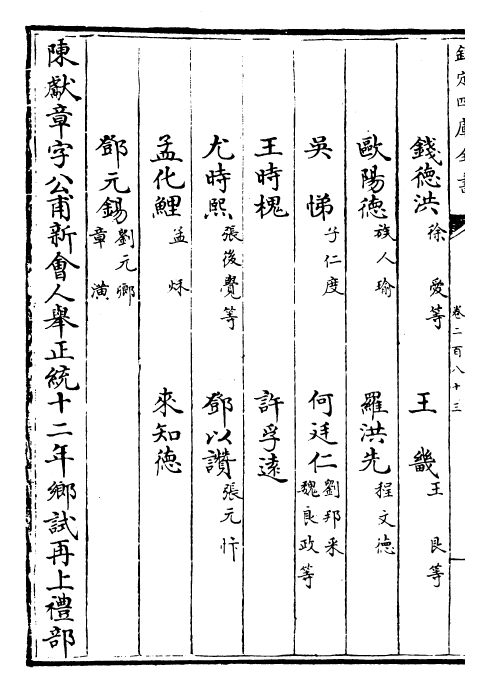 欽定四庫全書
卷二百八十三
錢德洪 徐愛等 王畿 王艮等
歐陽德 族人瑜 羅洪先 程文德
吳悌 子仁度 何廷仁 劉邦采 魏良政等
王時槐 許孚遠
尤時熙 張後覺等 鄧以讚 張元忭
孟化鯉 孟秋 來知德
鄧元錫 劉元卿 章潢
陳獻章字公甫新會人舉正統十二年鄉試再上禮部